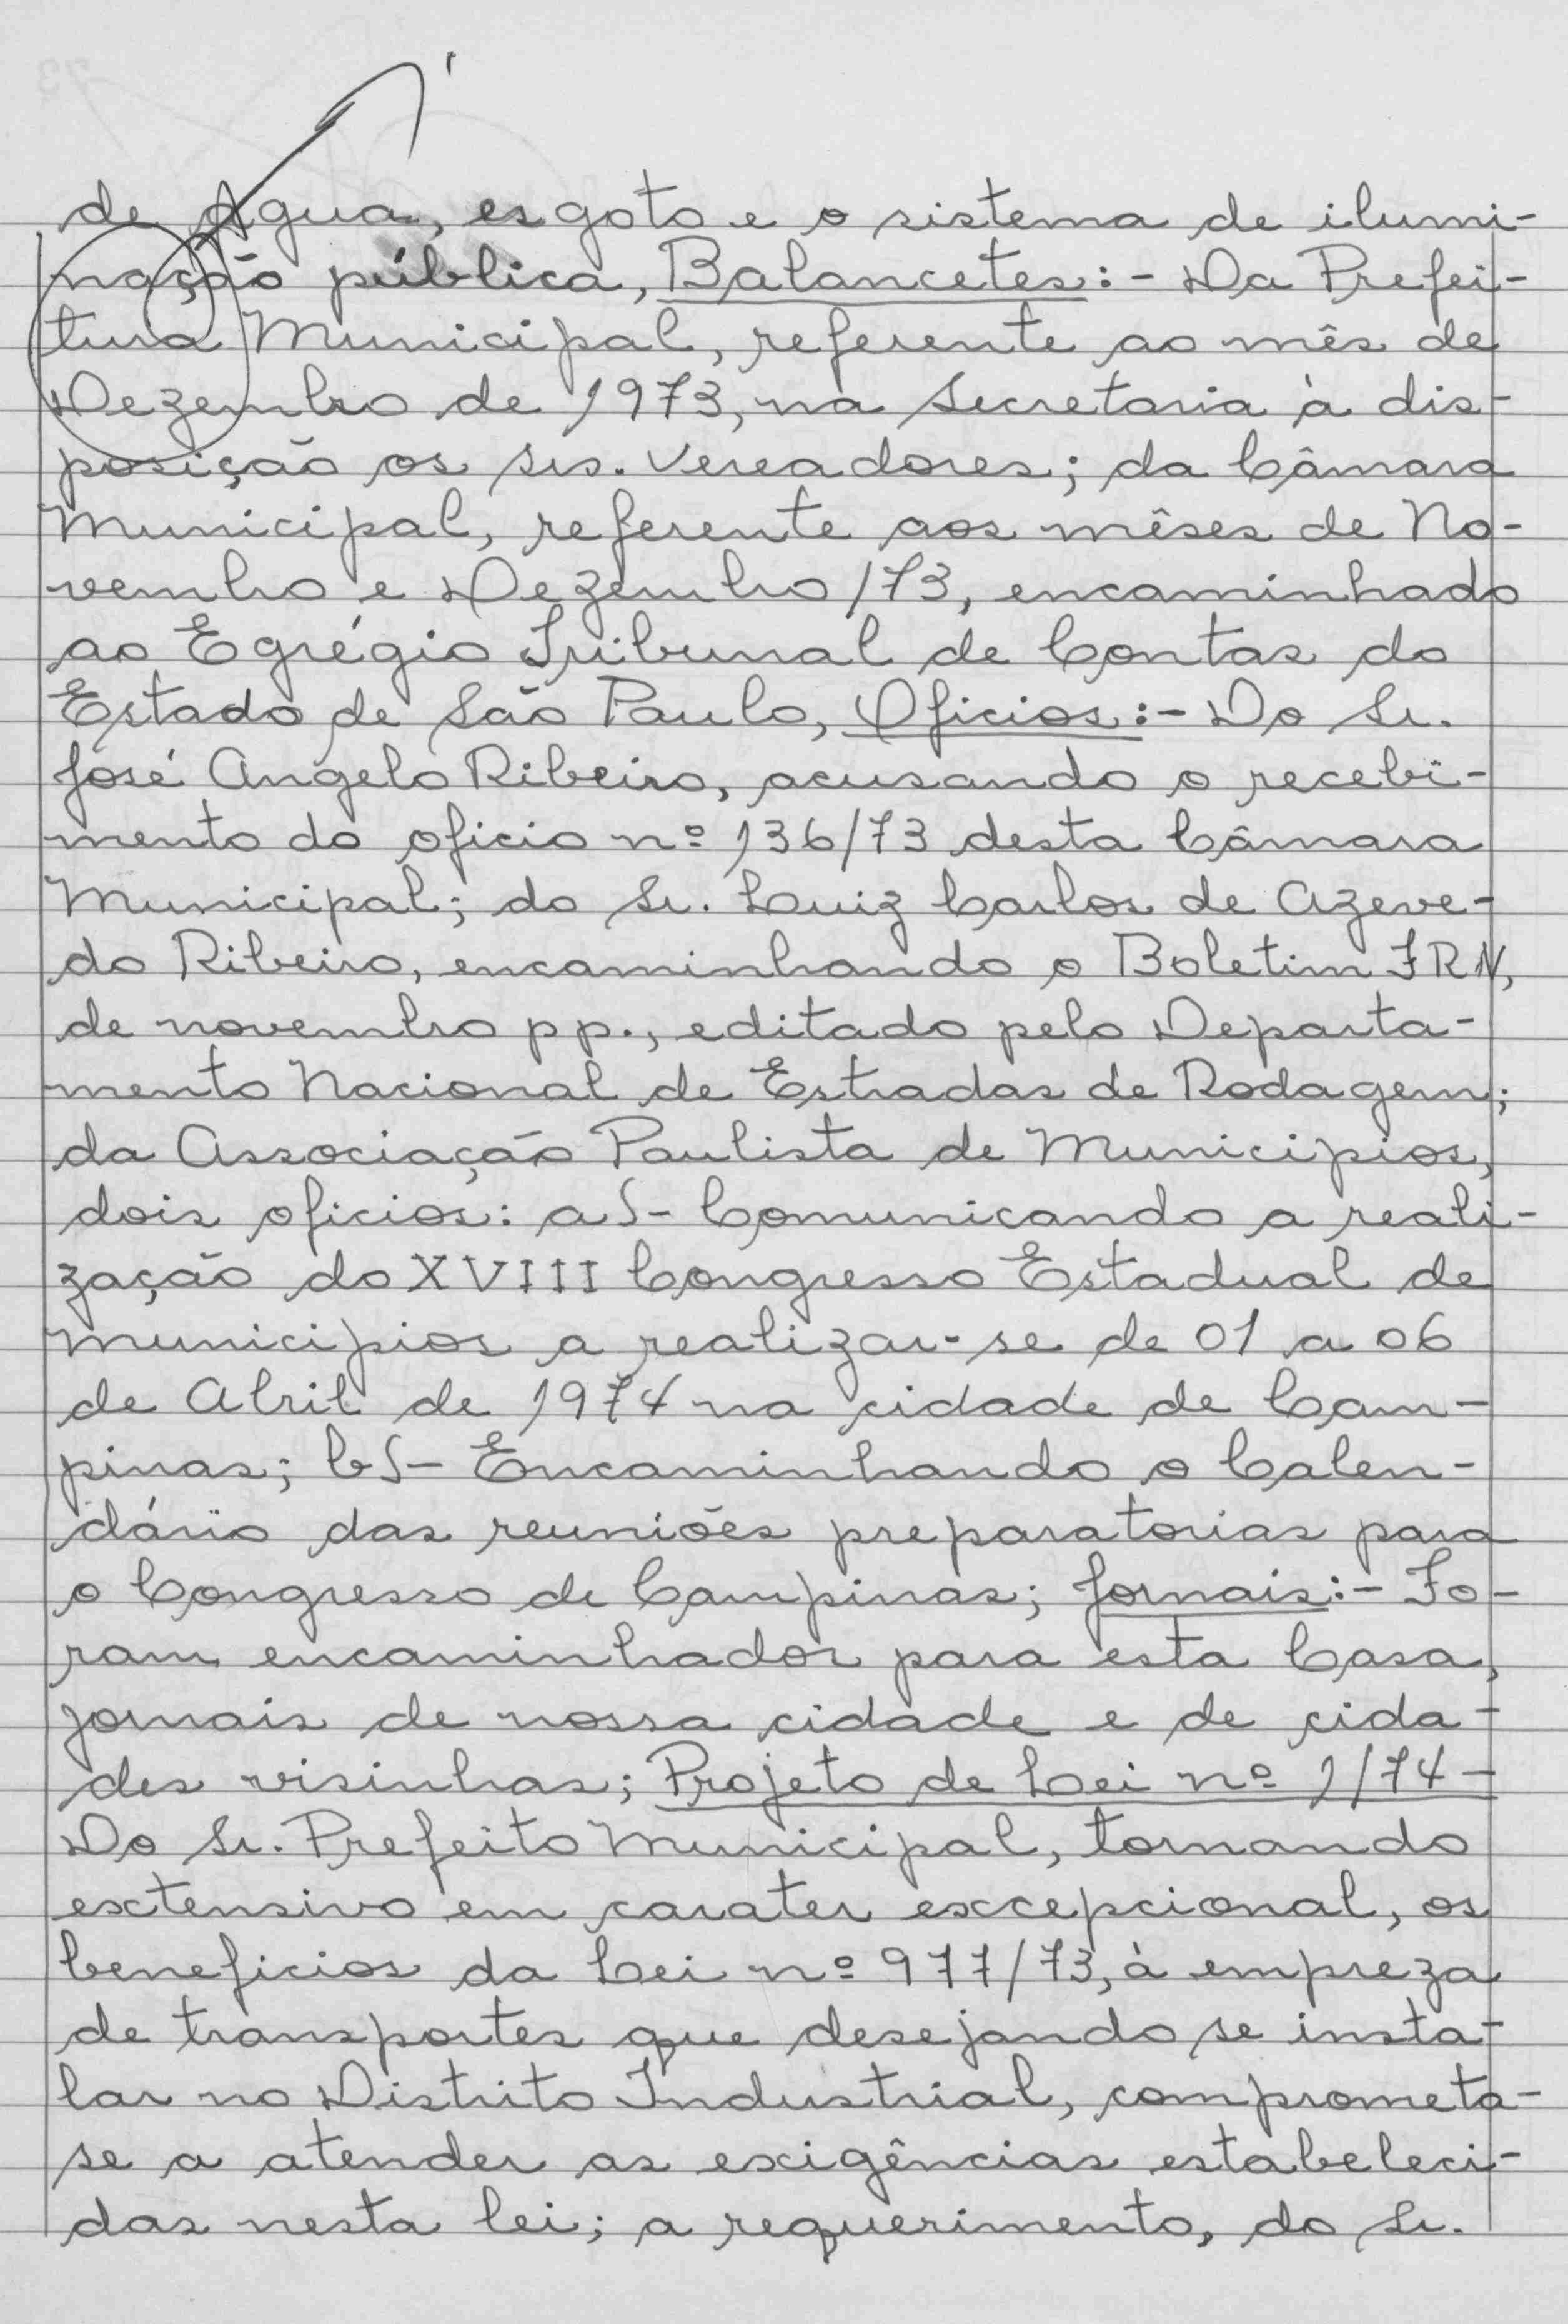 de Agua, esgoto e o sistema de ilumi-
nação pública, Balancetes:- Da Prefei-
tura Municipal, referente ao mês de
Dezembro de 1973, na Secretaria à dis-
posição os srs. Vereadores; da Câmara
Municipal, referente aos mêses de No-
vembro e Dezembro/73, encaminhado
ao Egrégio Tribunal de Contas do
Estado de São Paulo, Oficios:- Do Sr.
José Angelo Ribeiro, acusando o recebi-
mento do oficio nº 136/73 desta Câmara
Municipal; do Sr. Luiz Carlos de Azeve-
do Ribeiro, encaminhando o Boletim FRN,
de novembro pp., editado pelo Departa-
mento Nacional de Estradas de Rodagem;
da Associação Paulista de Municipios,
dois oficios: a)- Comunicando a reali-
zação do XVIII Congresso Estadual de
Municipios a realizar-se de 01 a 06
de Abril de 1974 na cidade de Cam-
pinas; b)- Encaminhando o Calen-
dário das reuniões preparatorias para
o Congresso de Campinas; Jornais:- Fo-
ram encaminhados para esta Casa,
jornais de nossa cidade e de cida-
des visinhas; Projeto de Lei nº 1/74-
Do Sr. Prefeito Municipal, tornando
extensivo em carater excepcional, os
beneficios da Lei nº 977/73, à empreza
de transportes que desejando se insta-
lar no Distrito Industrial, comprometa-
se a atender as exigências estabeleci-
das nesta lei; a requerimento, do Sr.